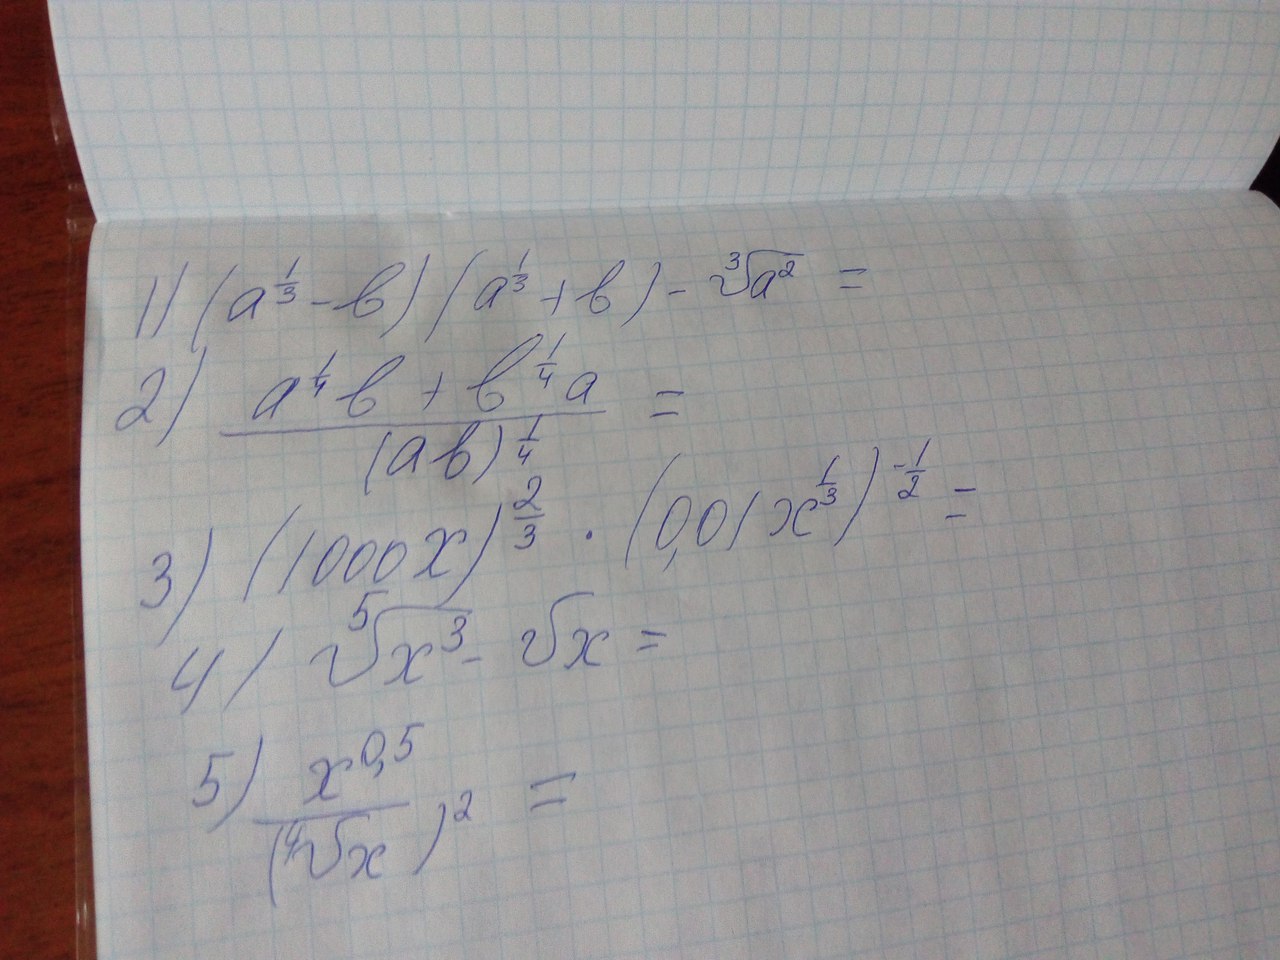 1) (a^{1/3} - в) (a^{1/3} + в) - ∛a² =
2) (a^{1/4} в + в^{1/4} a) / (aв)^{1/4} =
3) (1000x)^{2/3} · (0,01x^{1/3})^{-1/2} =
4) ⁵√x³ - √x =
5) x^{0,5} / (⁴√x)² =